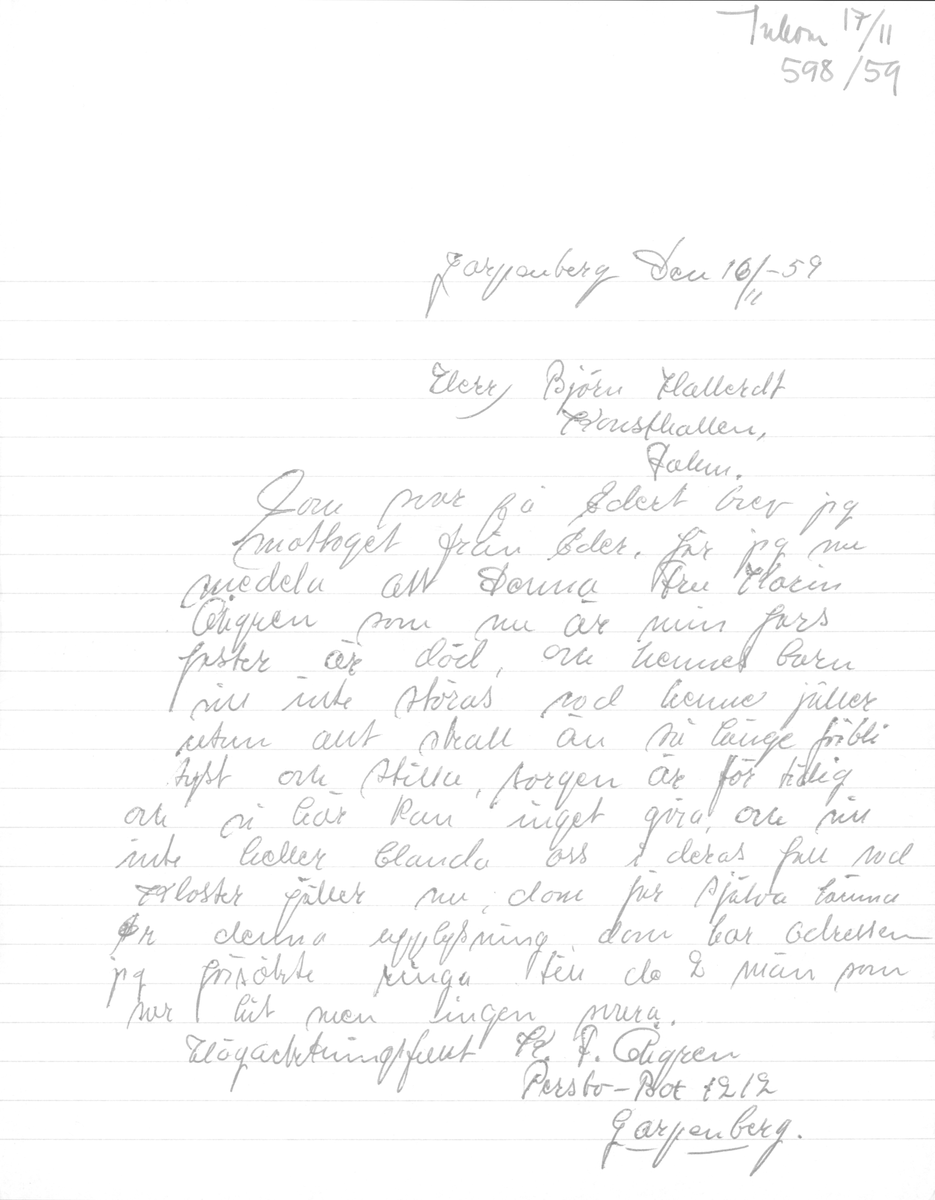 Inkom 17/11
598/59
Garpenberg Den 16/11-59
Herr Björn Hallerdt
Konsthallen,
Falun.
Som svar på Edert brev jag
mottaget från Eder. får jag nu
medela att Denna Fru Karin
Ohgren som nu är min fars
faster är död, och hennes barn
vill inte störas vad henne jäller
utan allt skall än så länge förbli
tyst och stilla, sorgen är för tidig
och vi här kan inget göra, och vill
inte heller blanda oss i deras fall vad
Kloster jäller nu, dom får själva lämna
Er denna upplysning dom har adressen
jag försökte ringa till de 2 män som
var hit men ingen svara.
Högaktningsfullt K. F. Ohgren
Persbo-Box 1212
Garpenberg.